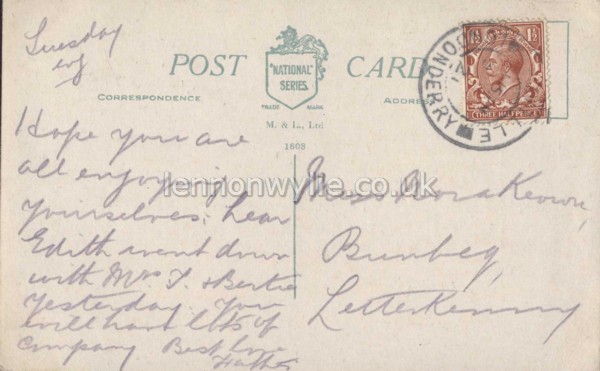 Tuesday
evg
POST CARD
"NATIONAL"
SERIES
TRADE MARK
CORRESPONDENCE
ADDRESS
M. & L., Ltd
1608
THREE HALFPENCE
LONDONDERRY
Hope you are
all enjoying
yourselves, hear
Edith went down
with Mrs T. & Bertie
yesterday. You
will have lots of
company Best love
Father
Miss Nora Keown,
Bunbeg,
Letterkenny
lennonwylie.co.uk